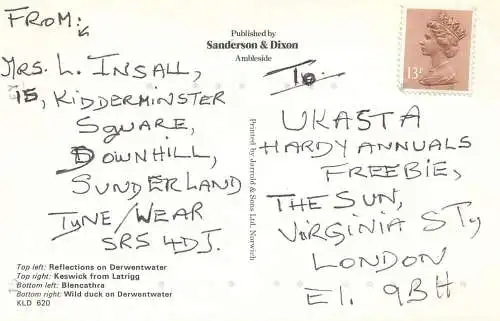 FROM:
MRS. L. INSALL,
15, KIDDERMINSTER
SQUARE,
DOWNHILL,
SUNDERLAND
TYNE/WEAR
SR5 4DJ.
Published by
Sanderson & Dixon
Ambleside
To:
13P
UKASTA
HARDY ANNUALS
FREEBIE,
THE SUN,
VIRGINIA STy
LONDON
E1. 9BH
Printed by Jarrold & Sons Ltd. Norwich
Top left: Reflections on Derwentwater
Top right: Keswick from Latrigg
Bottom left: Blencathra
Bottom right: Wild duck on Derwentwater
KLD 620